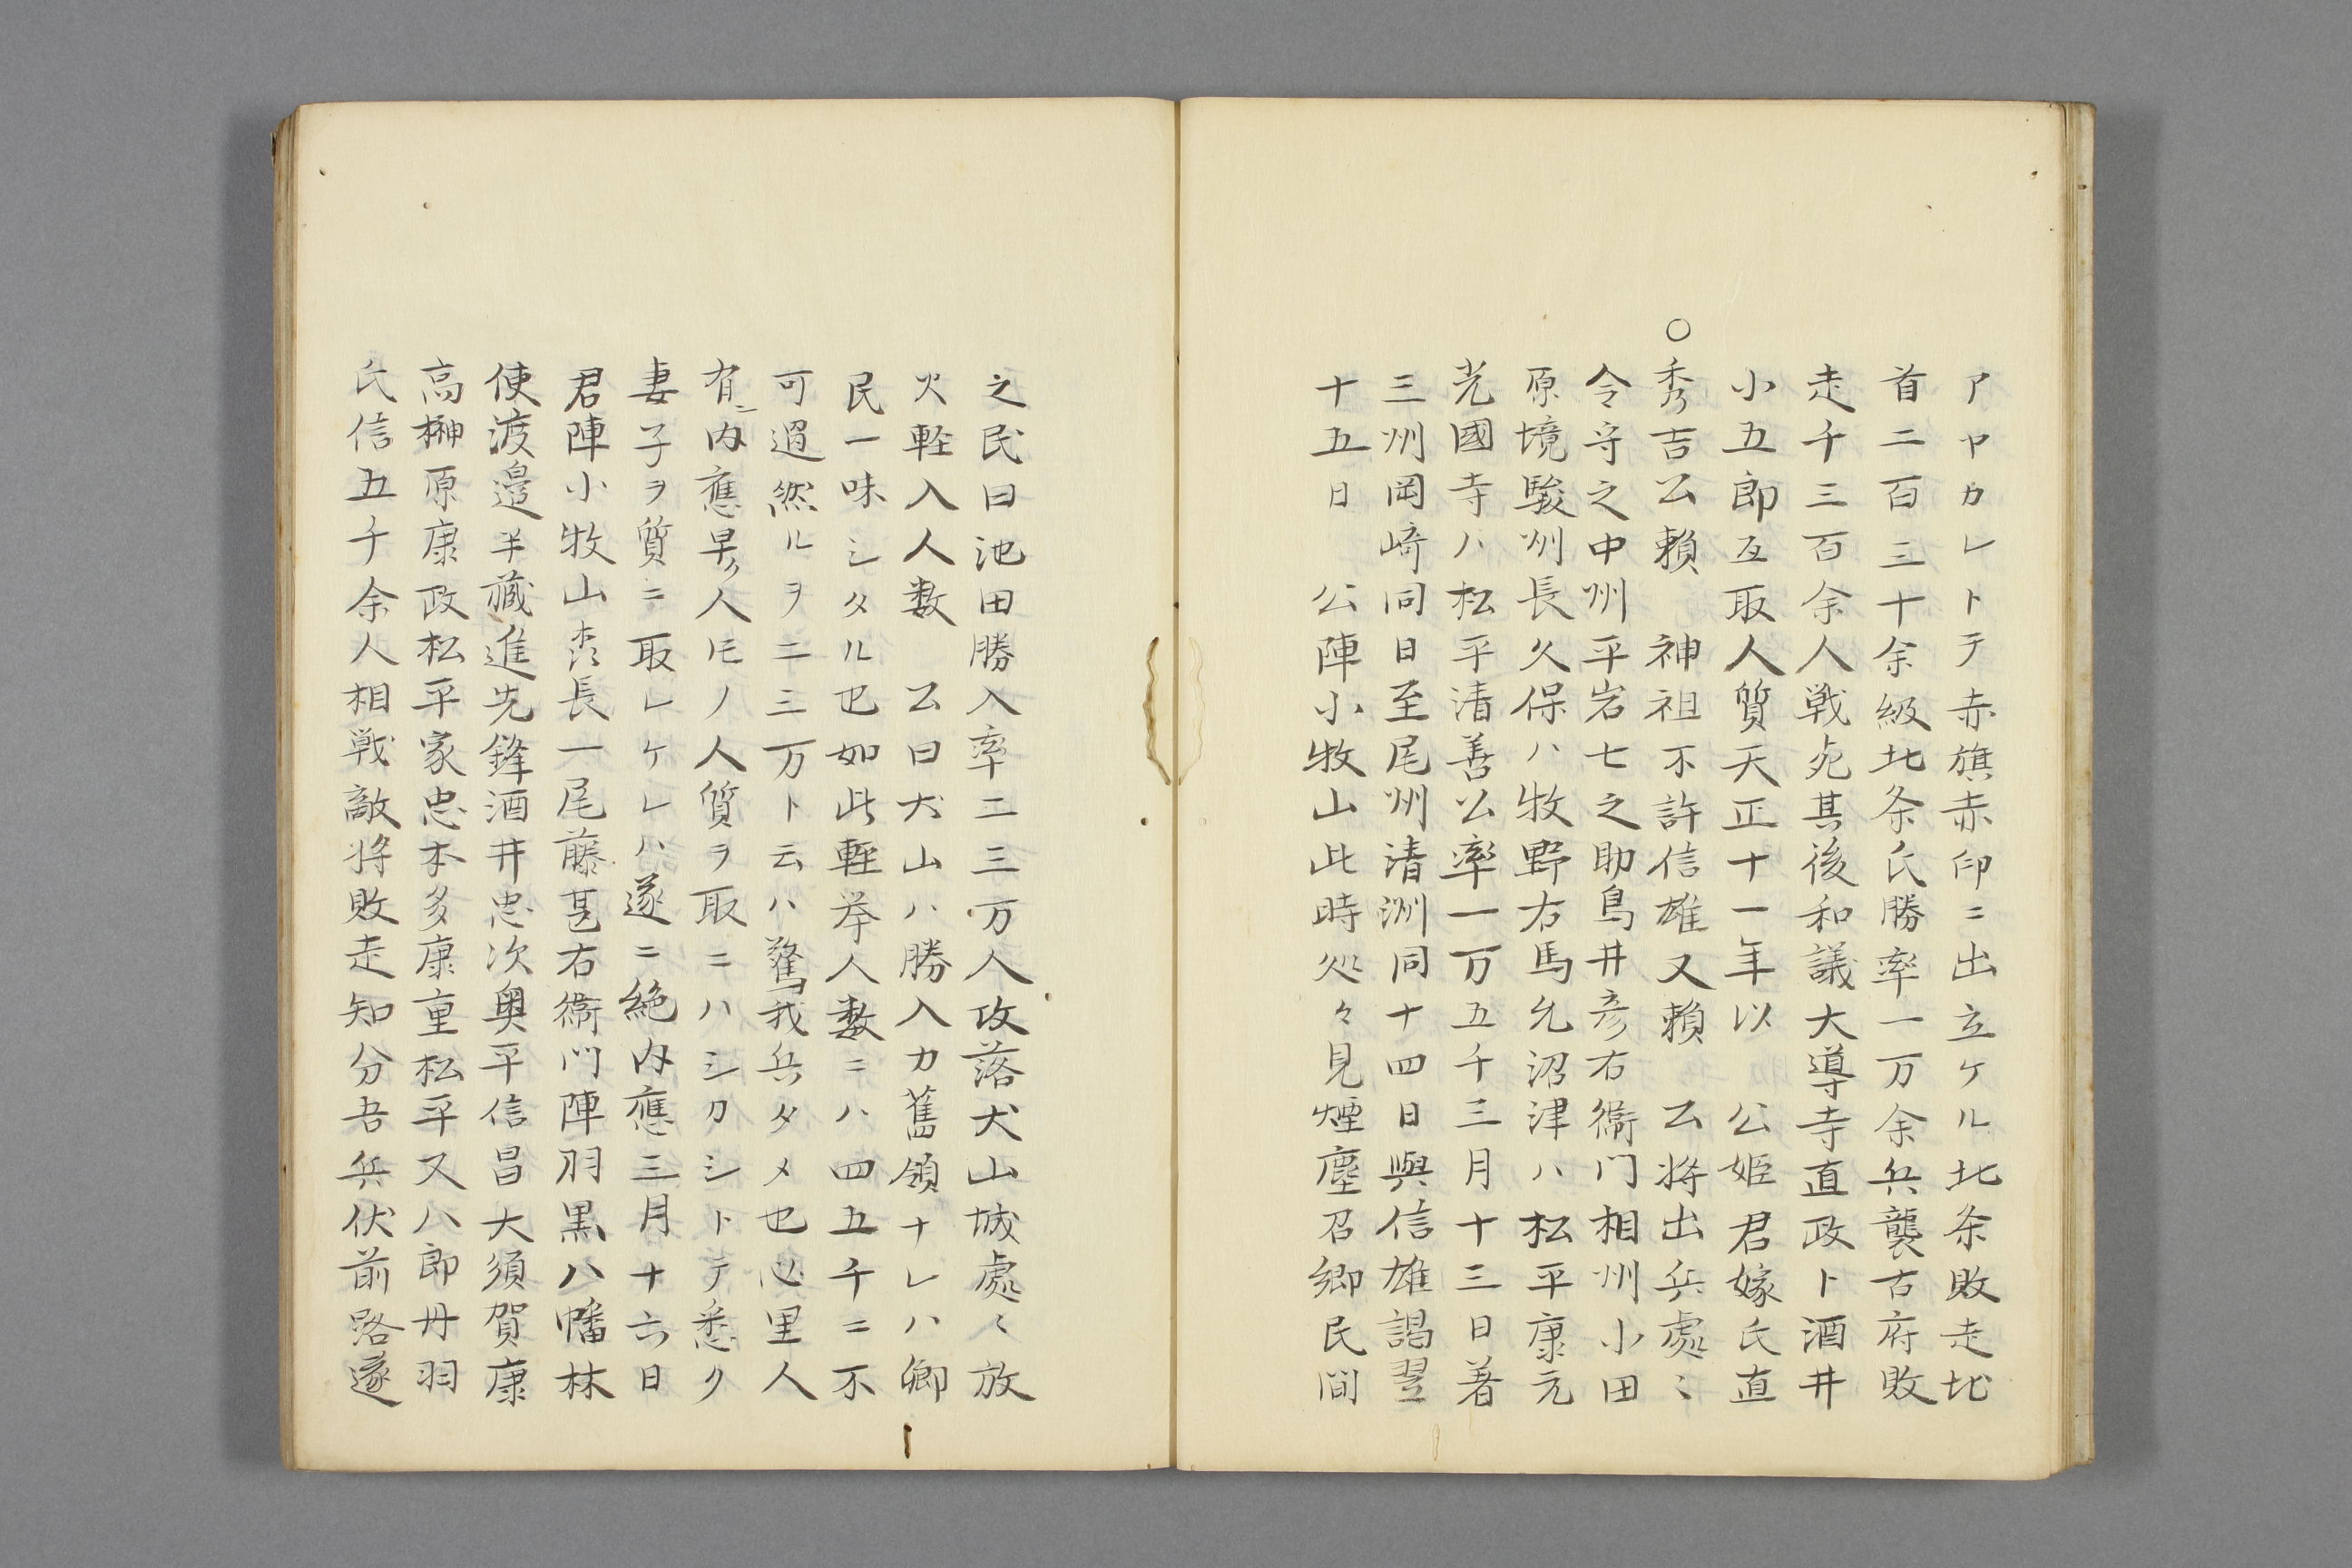 アヤカレトテ赤旗赤印ニ出立ケル北条敗走北
首二百三十余級北条氏勝率一万余兵襲古府敗
走千三百余人戦死其後和議大導寺直政ト酒井
小五郎互取人質天正十一年以　公姫君嫁氏直
○秀吉公頼　神祖不許信雄又頼　公将出兵處〻
令守之中州平岩七之助鳥井彦右衛门相州小田
原境駿州長久保ハ牧野右馬允沼津ハ松平康元
光國寺ハ松平清善公率一万五千三月十三日著
三州岡崎同日至尾州清洲同十四日與信雄謁翌
十五日　公陣小牧山此時処々見煙塵召郷民間
之民曰池田勝入率二三万人攻落犬山城處〻放
火軽入人数　公曰犬山ハ勝入カ舊領ナレハ郷
民一味シタル也如此軽挙人数ニハ四五千ニ不
可過然ルヲ二三万ト云ハ驚我兵タメ也必里人
有ニ内應早ク人民ノ人質ヲ取ニハシカシトテ悉ク
妻子ヲ質ニ取レケレハ遂ニ絶内應三月十六日
君陣小牧山森長一尾藤甚右衛门陣羽黒八幡林
使渡邉半蔵進先鋒酒井忠次奥平信昌大須賀康
高榊原康政松平家忠本多康重松平又八郎丹羽
氏信五千余人相戦敵将敗走知分吾兵伏前路遂